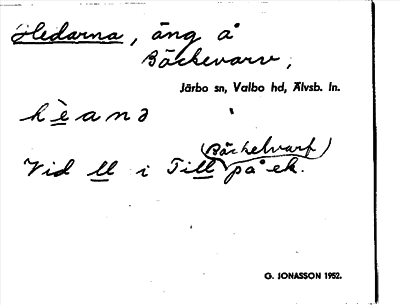 Hedarna, äng å
Bäckevarv,
Järbo sn, Valbo hd, Älvsb. ln.
hèanə
(Bäckelvarf)
Vid ll i Till på ek.
G. JONASSON 1952.